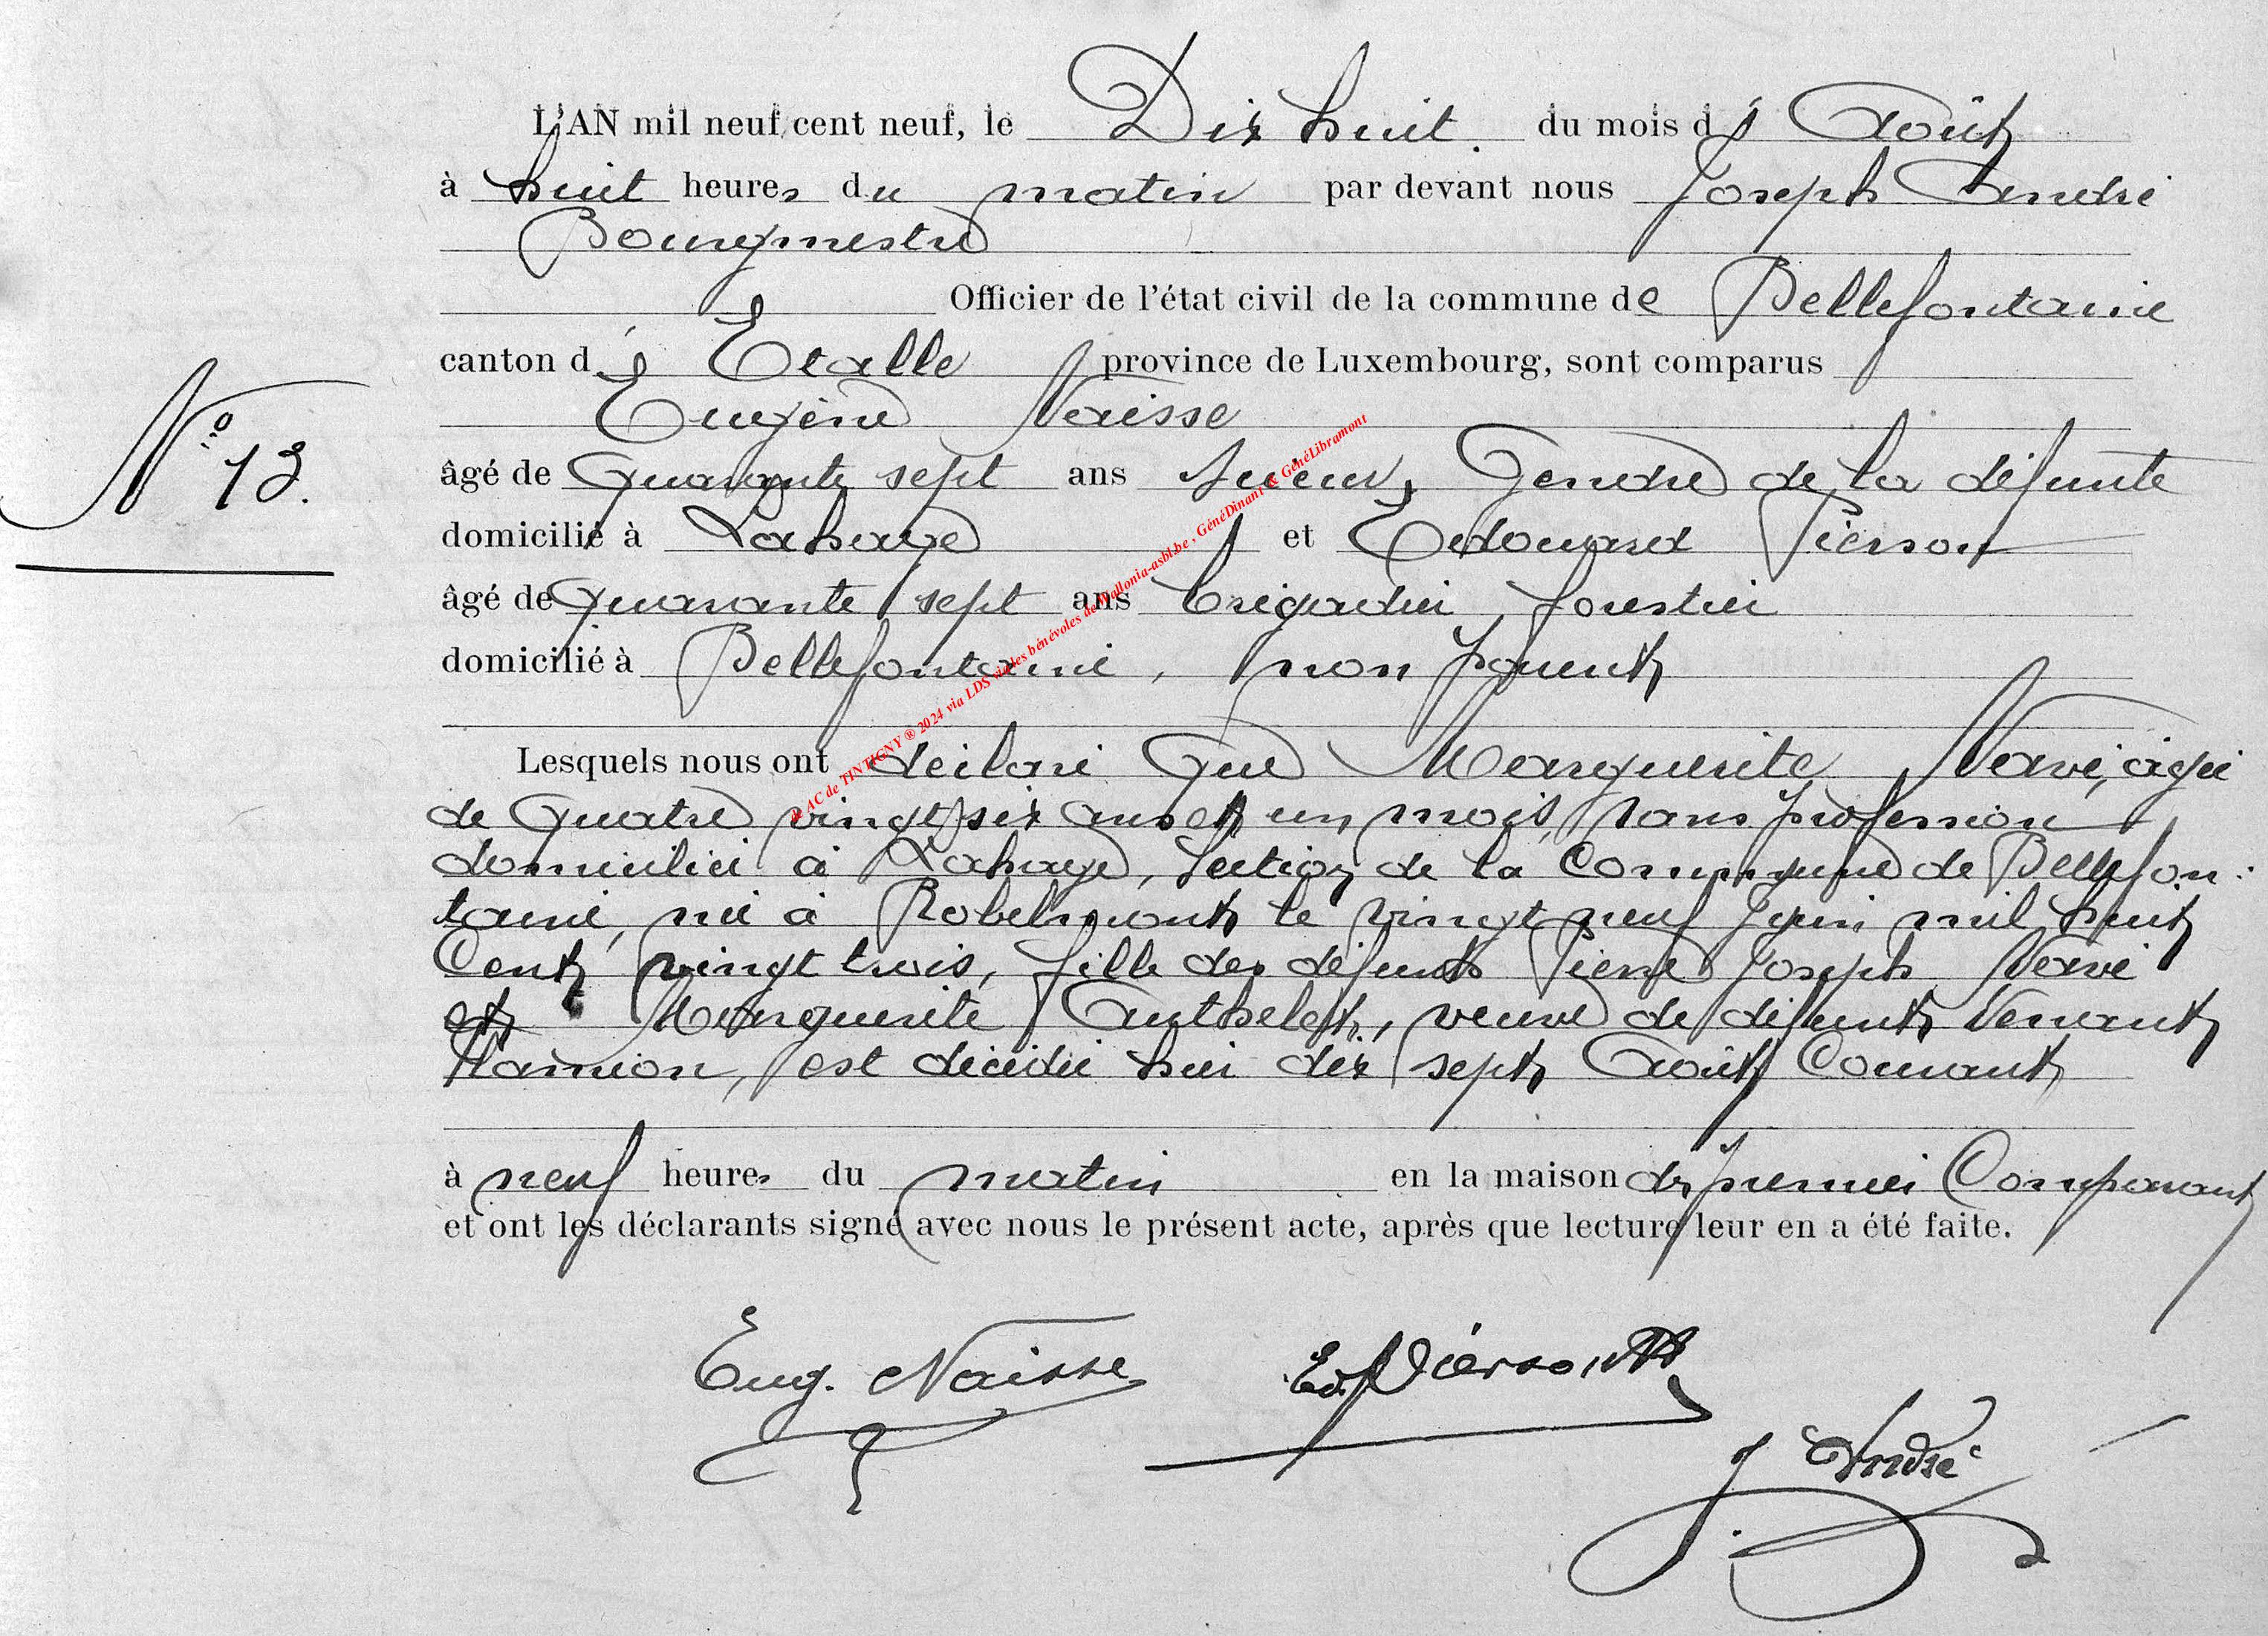 L'AN mil neuf cent neuf, le Dix huit. du mois d'Août
à huit heures du matin par devant nous Joseph André
Bourgmestre
Officier de l'état civil de la commune de Bellefontaine
canton d'Etalle province de Luxembourg, sont comparus
Eugène Naisse
N° 13.
âgé de Quarante sept ans Scieur, Gendre de la défunte
domicilié à Lahage et Edouard Pierson
âgé de Quarante sept ans brigadier forestier
domicilié à Bellefontaine, non parent
Lesquels nous ont déclaré que Marguerite Navé, agée
de Quatre vingt six ans et un mois, sans profession
domiciliée à Lahage, Section de la Commune de Bellefon-
taine, née à Robelmont le vingt neuf Juin mil huit
Cent vingt trois, fille des défunts Pierre Joseph Navé
et Marguerite veuve de défunt Venant
est décédée hier dix sept Août Courant
à neuf heures du matin en la maison du premier Comparant
et ont les déclarants signé avec nous le présent acte, après que lecture leur en a été faite.
Eug. Naisse Ed. Pierson
J. André
AC de TINTIGNY ® 2024 via LDS via les bénévoles de Wallonia-asbl.be , GénéDinant & GénéLibramont